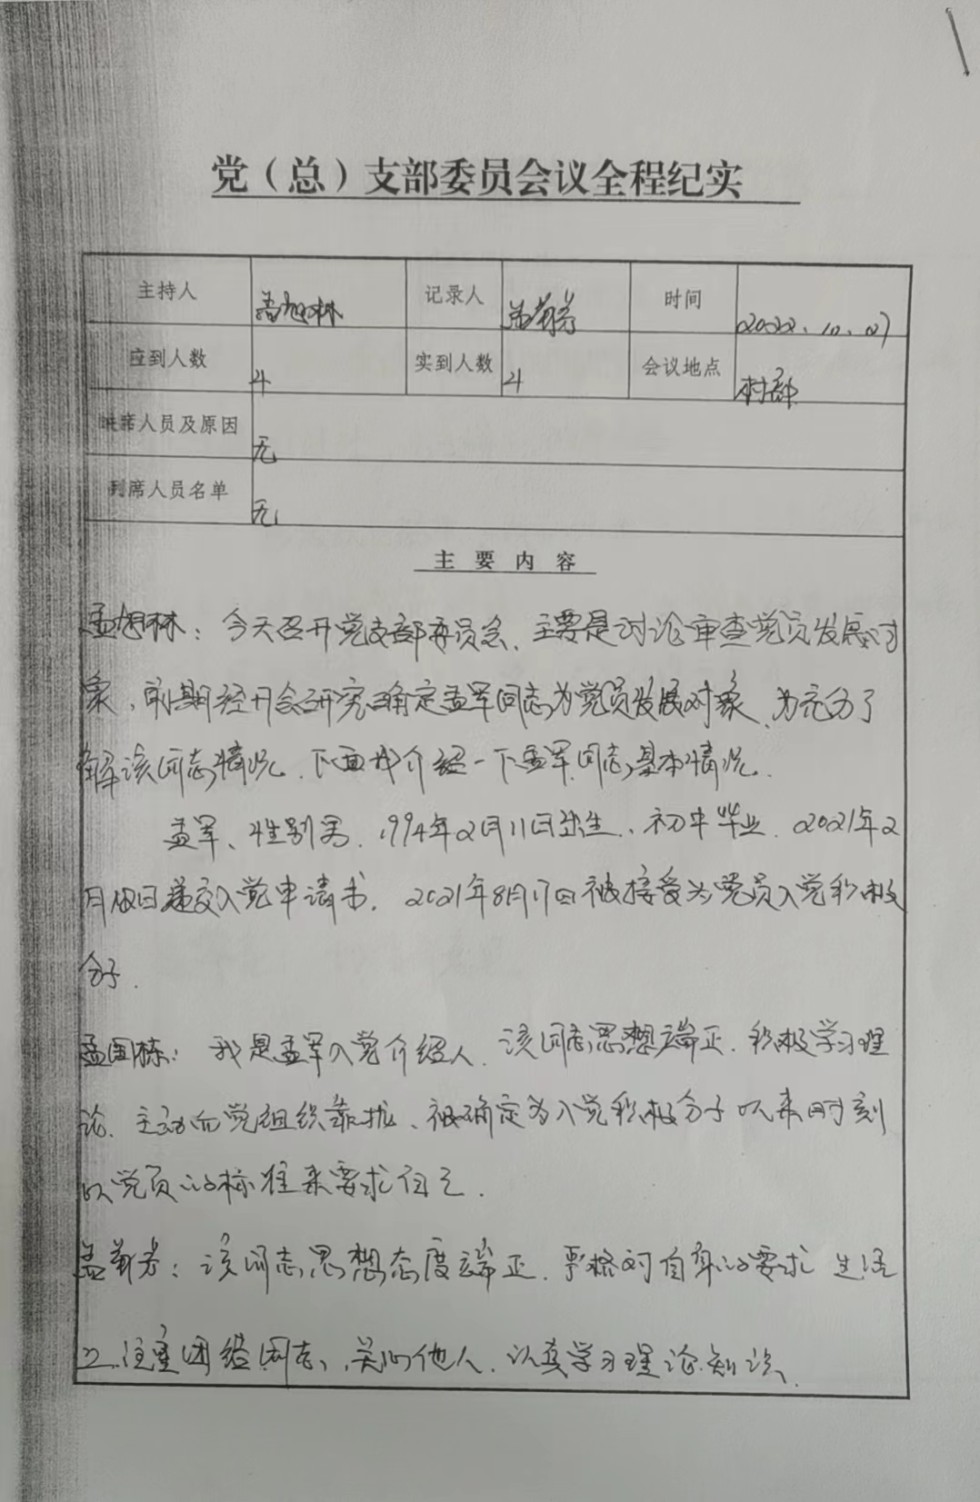 党（总）支部委员会议全程纪实
主持人 孟旭林 记录人 孟菊芳 时间 2022.10.27
应到人数 4 实到人数 4 会议地点 村部
缺席人员及原因 无
列席人员名单 无
主要内容
孟旭林：今天召开党支部委员会、主要是讨论审查党员发展对
象，前期经开会研究确定孟军同志为党员发展对象、为充分了
解该同志情况、下面我介绍一下孟军同志基本情况.
孟军、性别男、1994年2月11日出生、初中毕业、2021年2
月18日递交入党申请书、2021年8月17日被接受为党员入党积极
分子.
孟国栋：我是孟军入党介绍人、该同志思想端正、积极学习理
论、主动向党组织靠拢、被确定为入党积极分子以来时刻
以党员的标准来要求自己.
孟菊芳：该同志思想态度端正、严格对自身的要求 生活
上注重团结同志、关心他人、认真学习理论知识.